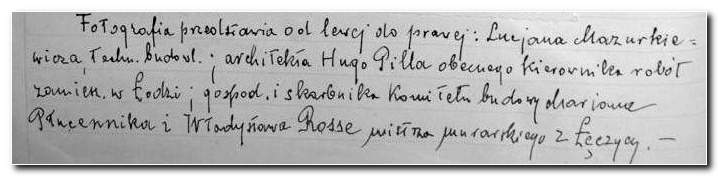 Fotografia przedstawia od lewej do prawej: Lucjana Mazurkie=
wicza, techn. budowl. ; architekta Hugo Pilla obecnego kierownika robót
zamiesz. w Łodzi ; gospod. i skarbnika Komitetu budowy Mariana
Płucennika i Władysława Rosse mistrza murarskiego z Łęczycy. —